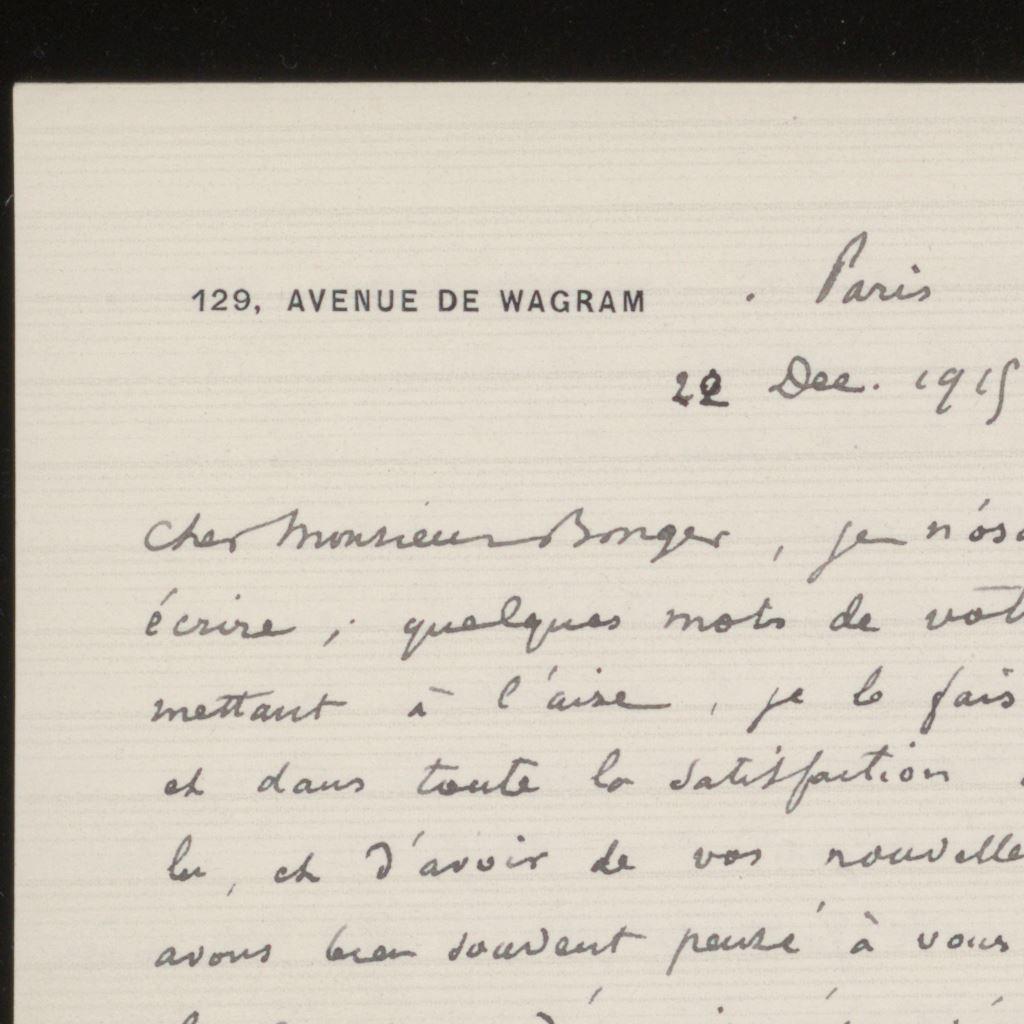 129, AVENUE DE WAGRAM . Paris
22 Dec. 1915
Cher Monsieur Bonger, je n'osa
écrire; quelques mots de vôt
mettant à l'aise, je le fais
et dans toute la satisfaction
lu, et d'avoir de vos nouvelle
avons bien souvent pensé à vous